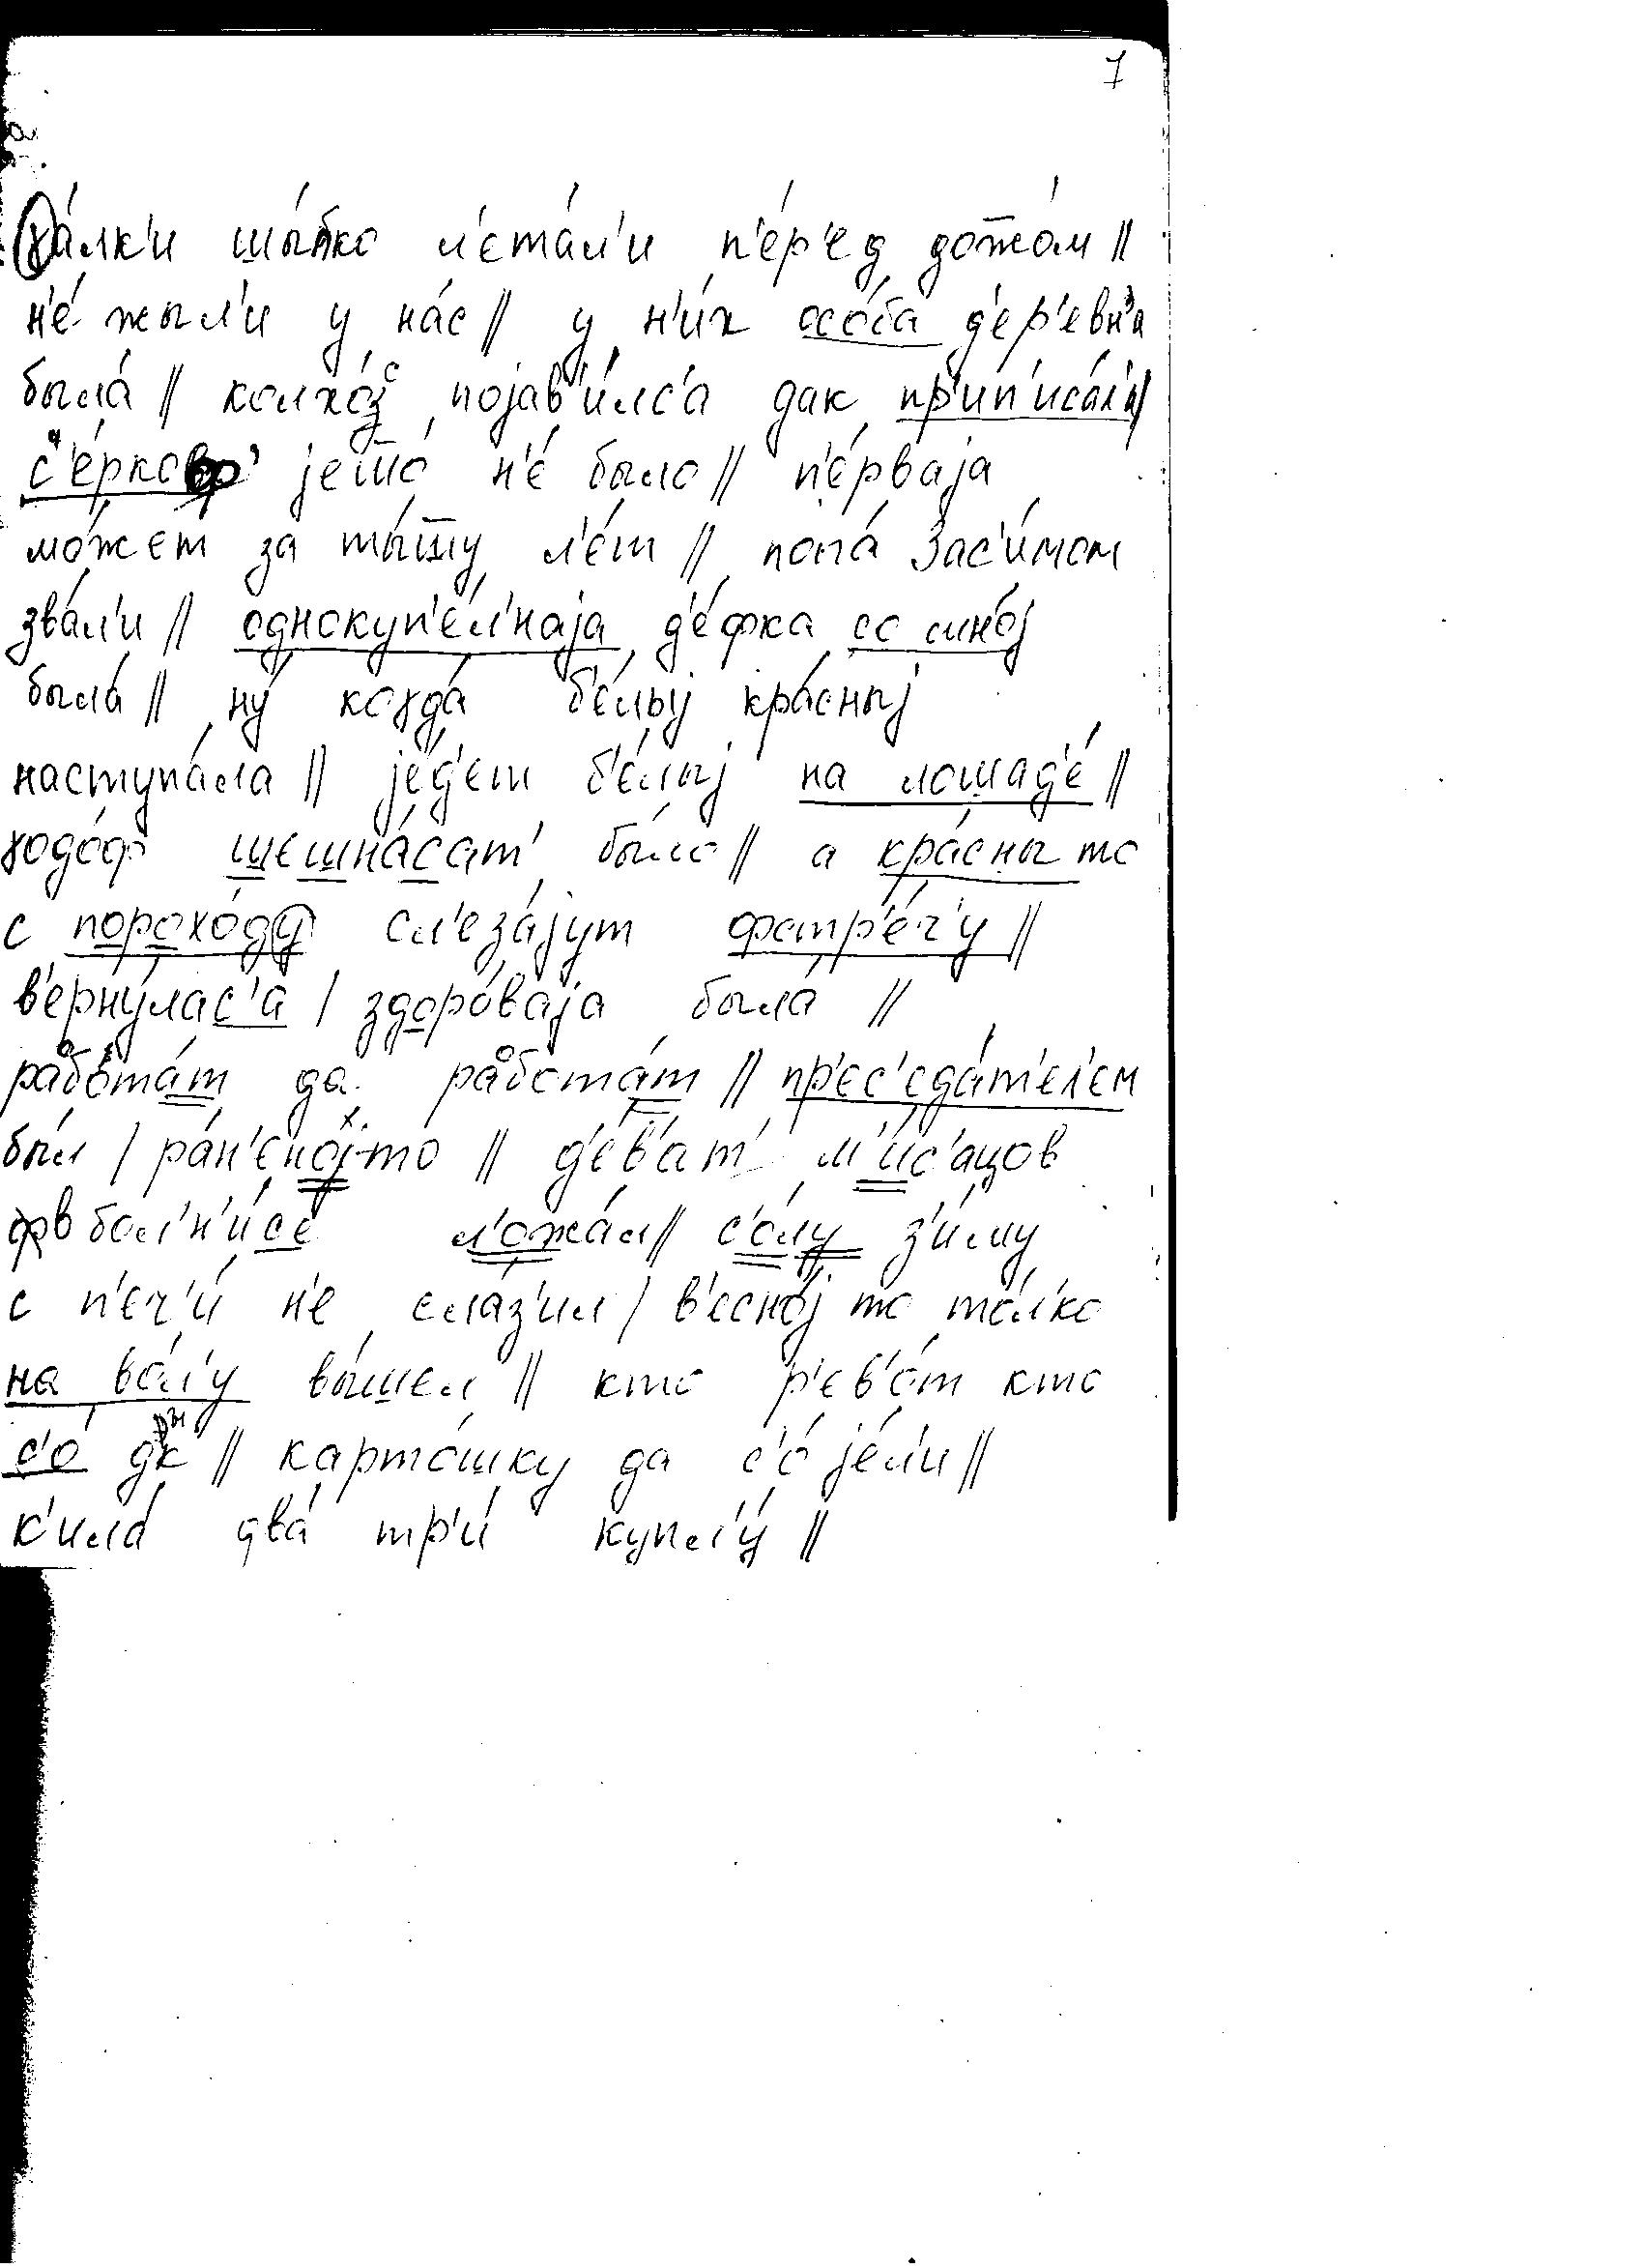 7
ɣа́лк'и шы́пко л'ета́л'и п'е́р'ед дож̅о́м //
н'е́ жыл'и у на́с // у н'и́х осо́ба д'ер'е́вн'а
была́ // колхо́с појав'и́лс'а дак пр'ип'иса́л'и //
с'е́рков' јеш̅о́ н'е́ было // п'е́рваја
мо́жет за ты́ш̅у л'е́т // попа́ Зас'и́мом
зва́л'и // однокуп'е́л'наја д'е́фка со мно́ј
была́ // ну́ коɣда́ б'е́лыј кра́сныј
наступа́ла // је́д'ет б'е́лыј на лошад'е́ //
ɣодо́ф шешна́сат' бы́ло // а кра́сны то
с порохо́ду сл'еза́јут фстр'е́ч'у //
в'ерну́лас'а / здоро́ваја была́ //
робо́та́т да робота́т // пр'ес'еда́т'ел'ем
бы́л / ра́н'еној-то // д'е́в'ат' м'и́с'ацов
в бол'н'и́се л'ожа́л // с'о́лу з'и́му
с п'еч'и́ н'е сла́з'ил / в'есно́ј то то́л'ко
на во́л'у вы́шел // кто р'ев'о́т кто
с'о́ дак // карто́шку да с'о́ је́л'и //
к'ила́ два́ тр'и́ купл'у́ //